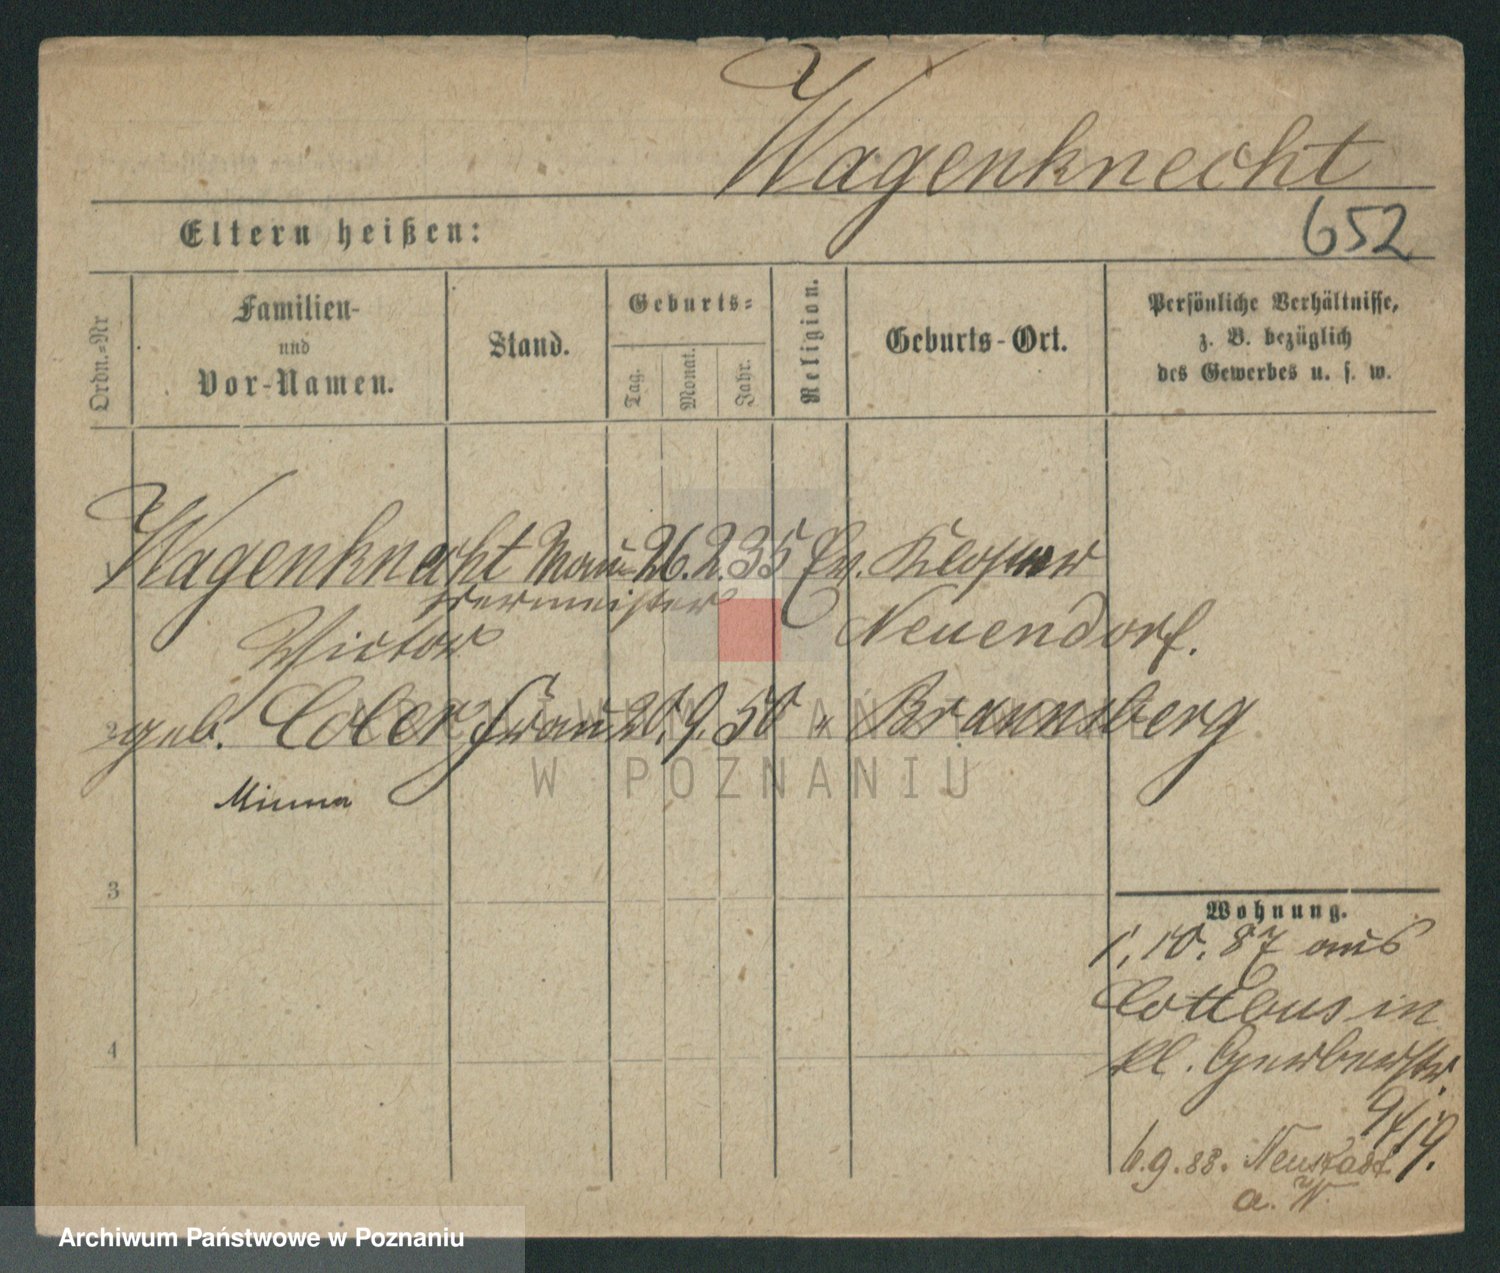 Wagenknecht
652
Eltern heißen:
Ordn.-Nr
Familien-
und
Vor-Namen.
Stand.
Geburts-
Tag.
Monat.
Jahr.
Religion.
Geburts-Ort.
Persönliche Verhältnisse,
z. B. bezüglich
des Gewerbes u. s. w.
1 Wagenknecht Mau- 26. 2. 35 Ev. Kloster
rermeister
Victor Neuendorf.
2 geb. Coler Frau 20. 9. 50 " Braunsberg
Minna
3
Wohnung.
1. 10. 87 aus
Cottbus in
kl. Gerberstr.
9/19.
4
6. 9. 88. Neustadt
a. W.
ARCHIWUM PAŃSTWOWE
W POZNANIU
Archiwum Państwowe w Poznaniu